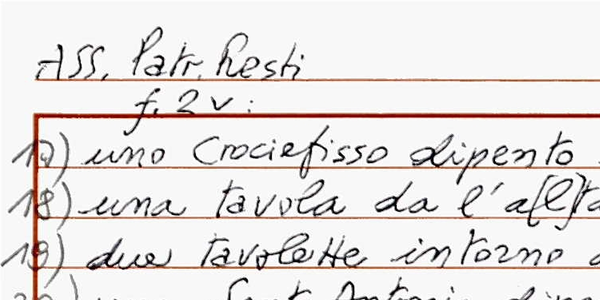 ASS. Patr. Resti
f. 2 v:
17) uno Crociefisso dipento
18) una tavola da l'a[l]ta
19) due tavolette intorno
Sant Antonio